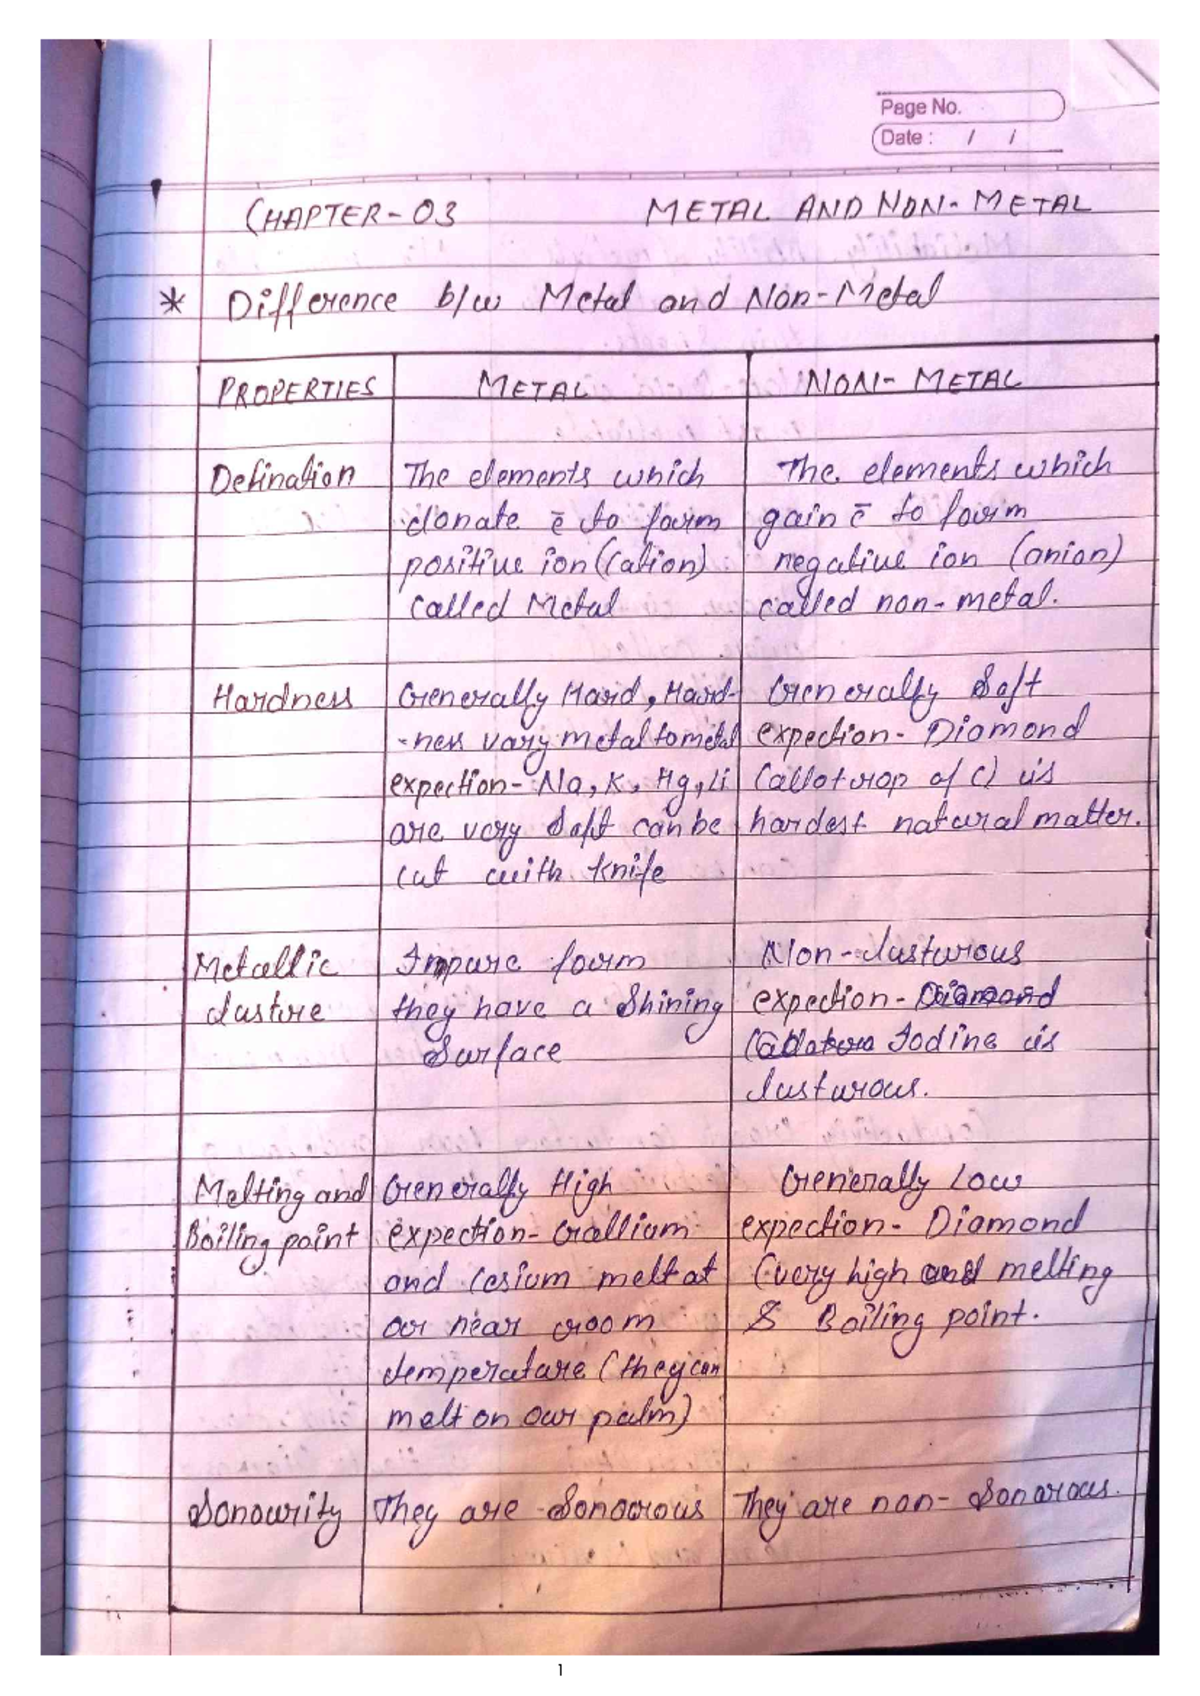 Page No.
Date : / /
CHAPTER-03 METAL AND NON-METAL
* Difference b/w Metal and Non-Metal
PROPERTIES METAL NON-METAL
Defination The elements which The elements which
donate ē to form gain ē to form
positive ion (cation) negative ion (anion)
called Metal called non-metal.
Hardness Generally Hard, Hard- Generally Soft
-ness vary metal to metal expection- Diamond
expection- Na, K, Hg, Li (allotrop of C) is
are very soft can be hardest natural matter.
cut with knife
Metallic Impure form Non-lusturous
lusture they have a Shining expection-
Surface Iodine is
lusturous.
Melting and Generally High Generally Low
Boiling point expection- Gallium expection- Diamond
and Cesium melt at (very high melting
or near room & Boiling point.
temperature (they can
melt on our palm)
Sonourity They are Sonorous They are non- Sonorous.
1